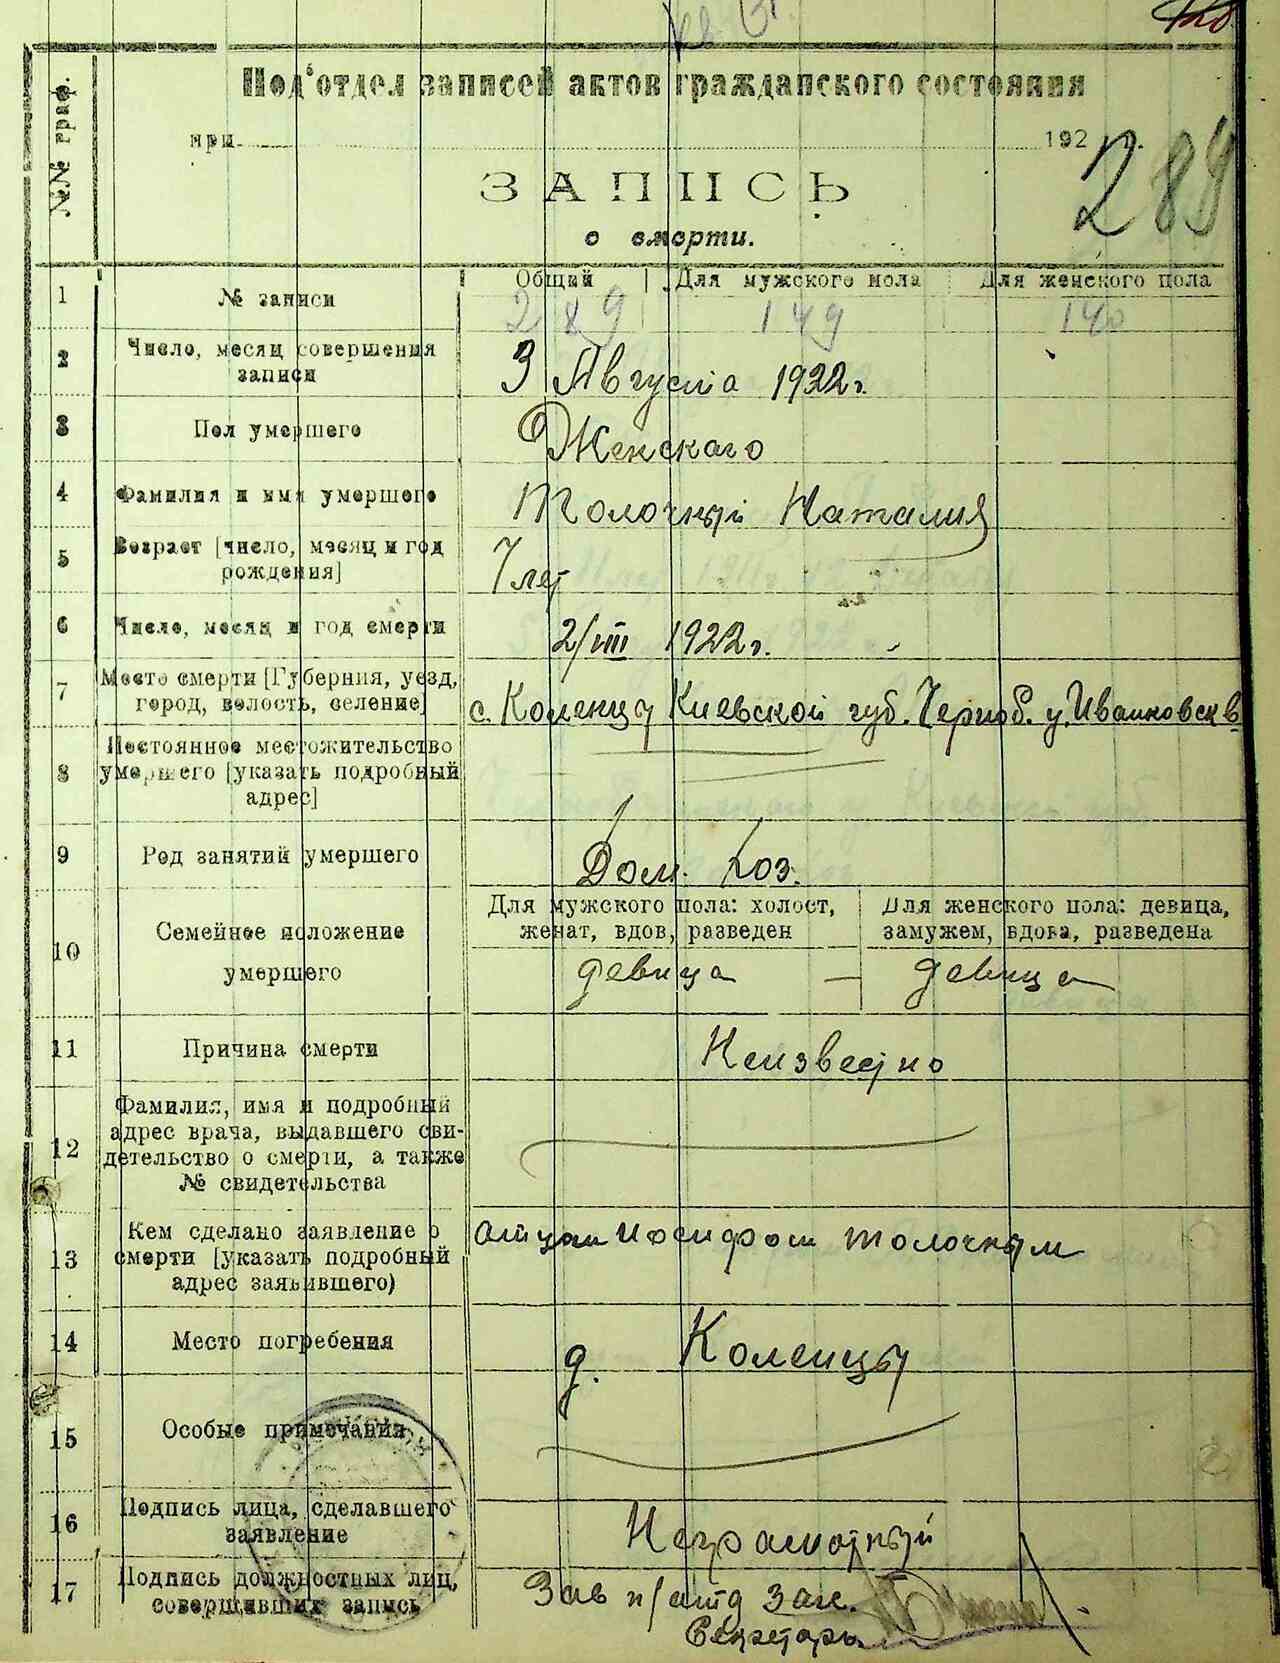 Под‘отдел записей актов гражданского состояния
№№ граф.
при 192 г.
289
ЗАПИСЬ
о смерти.
1 № записи Общий Для мужского пола Для женского пола
289 149 140
2 Число, месяц совершения
записи
3 Августа 1922 г.
3 Пол умершего Женского
4 Фамилия и имя умершего Толочный Наталия
5 Возраст [число, месяц и год
рождения]
7 лет
6 Число, месяц и год смерти 2/VIII 1922 г.
7 Место смерти [Губерния, уезд,
город, волость, селение]
с. Коленцы Киевской губ. Черноб. у. Иванковск в
8 Постоянное местожительство
умершего [указать подробный
адрес]
9 Род занятий умершего Дом. хоз.
10 Семейное положение
умершего
Для мужского пола: холост,
женат, вдов, разведен
девица —
Для женского пола: девица,
замужем, вдова, разведена
девица
11 Причина смерти Неизвестно
12 Фамилия, имя и подробный
адрес врача, выдавшего сви-
детельство о смерти, а также
№ свидетельства
13 Кем сделано заявление о
смерти [указать подробный
адрес заявившего)
отцом Иосифом Толочным
14 Место погребения д. Коленцы
15 Особые примечания
16 Подпись лица, сделавшего
заявление
Неграмотный
17 Подпись должностных лиц,
совершивших запись
Зав п/отд Загс.
Секретарь